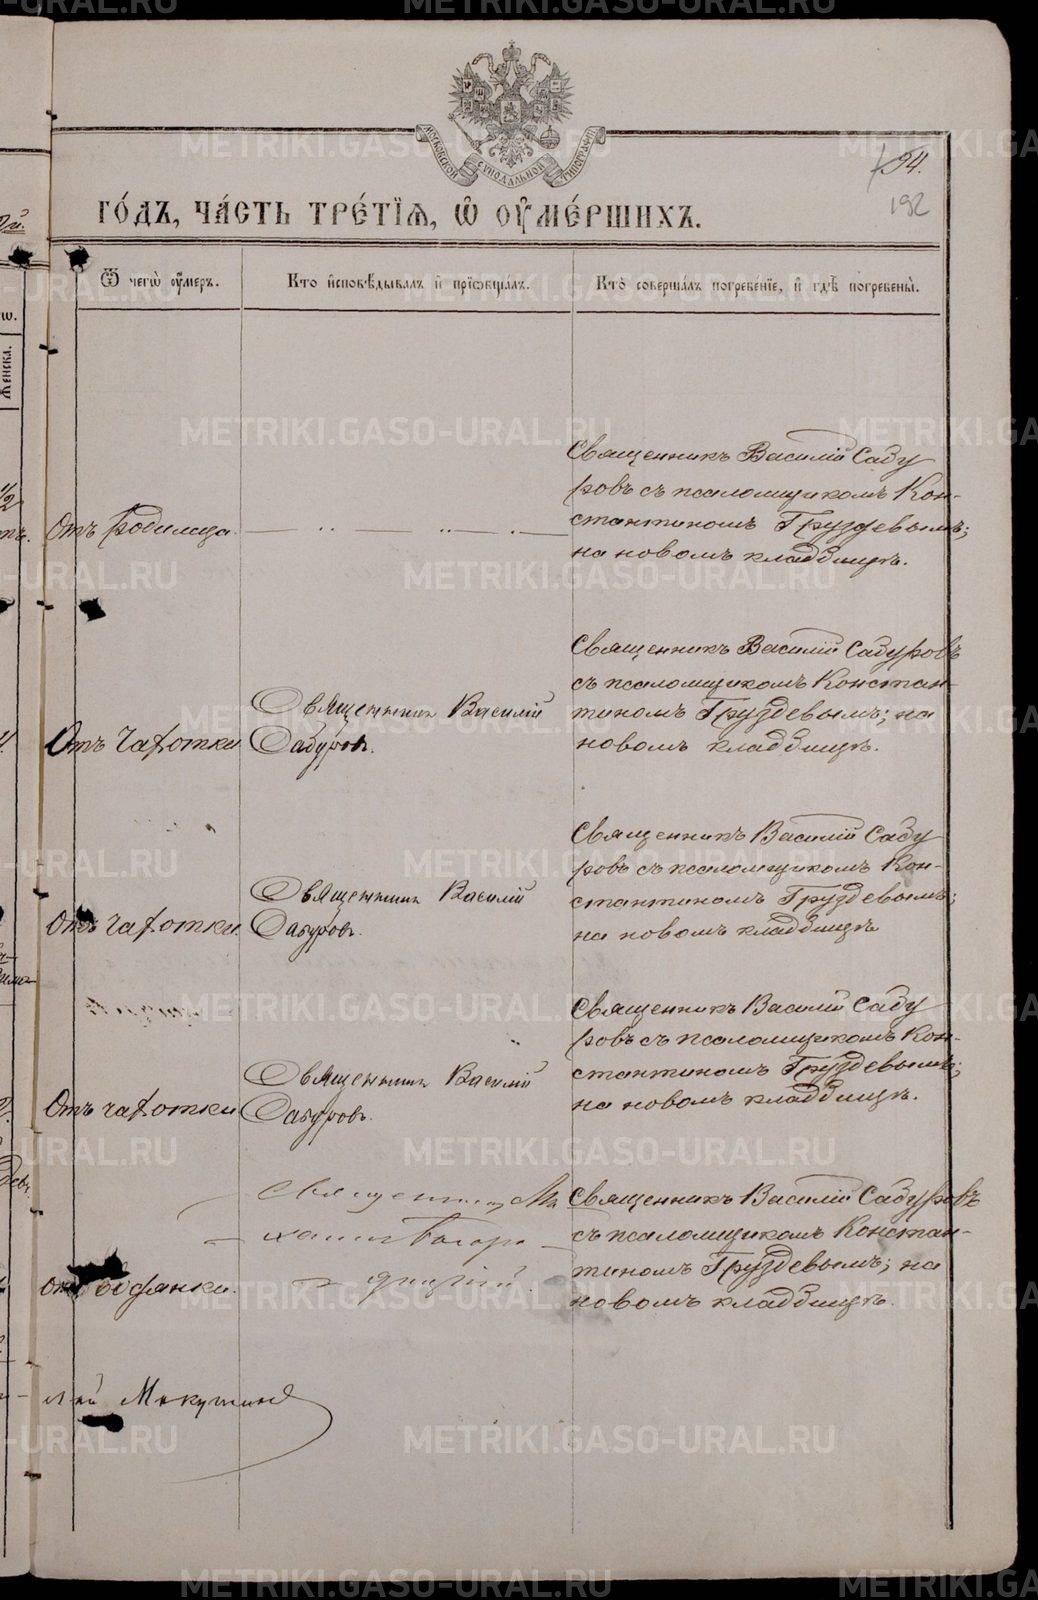 МОСКОВСКОЙ СѴНОДАЛЬНОЙ ТИПОГРАФІИ
94.
192
ГО́ДЪ, ЧА́СТЬ ТРЕ́ТІѦ, Ѡ҆ ОУ҆МЕ́РШИХЪ.
Ѿ чегѡ̀ оу҆́меръ.
Кто̀ и҆сповѣ́дывалъ и҆ прїѡбща́лъ.
Кто̀ соверша́лъ погребе́нїе, и҆ гдѣ̀ погребены̀.
Женска.
Отъ родимца
Священникъ Василій Сабу
ровъ съ псаломщикомъ Кон-
стантиномъ Груздевымъ;
на новомъ кладбищѣ.
Отъ чахотки
Священник Василій
Сабуровъ.
Священникъ Василій Сабуровъ
съ псаломщикомъ Констан-
тиномъ Груздевымъ; на
новомъ кладбищѣ.
Отъ чахотки.
Священник Василій
Сабуровъ.
Священникъ Василій Сабу
ровъ съ псаломщикомъ Кон-
стантиномъ Груздевымъ;
на новомъ кладбищѣ
Отъ чахотки
Священник Василій
Сабуровъ.
Священникъ Василій Сабу
ровъ съ псаломщикомъ Кон-
стантиномъ Груздевымъ;
на новомъ кладбищѣ.
Священникъ Ми
хаилъ
Священникъ Василій Сабуровъ
съ псаломщикомъ Констан-
тиномъ Груздевымъ; на
новомъ кладбищѣ.
METRIKI.GASO-URAL.RU